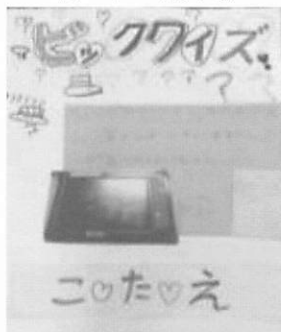 ビックワイズ
?
????
こ♡た♡え